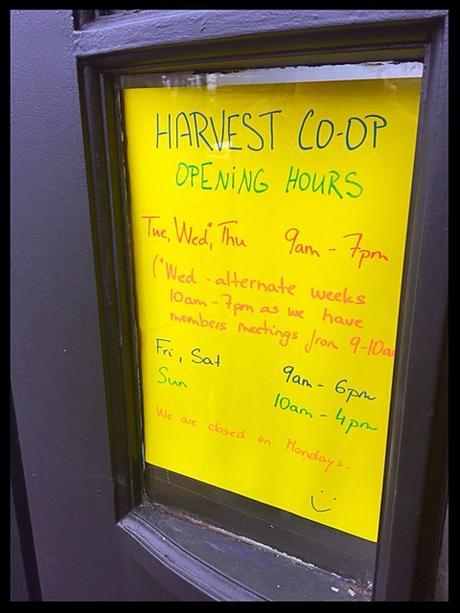 HARVEST CO-OP
OPENING HOURS
Tue, Wed,* Thu 9am - 7pm
(*Wed - alternate weeks
10am - 7pm as we have
members meetings from 9-10am
Fri, Sat 9am - 6pm
Sun 10am - 4pm
We are closed on Mondays.